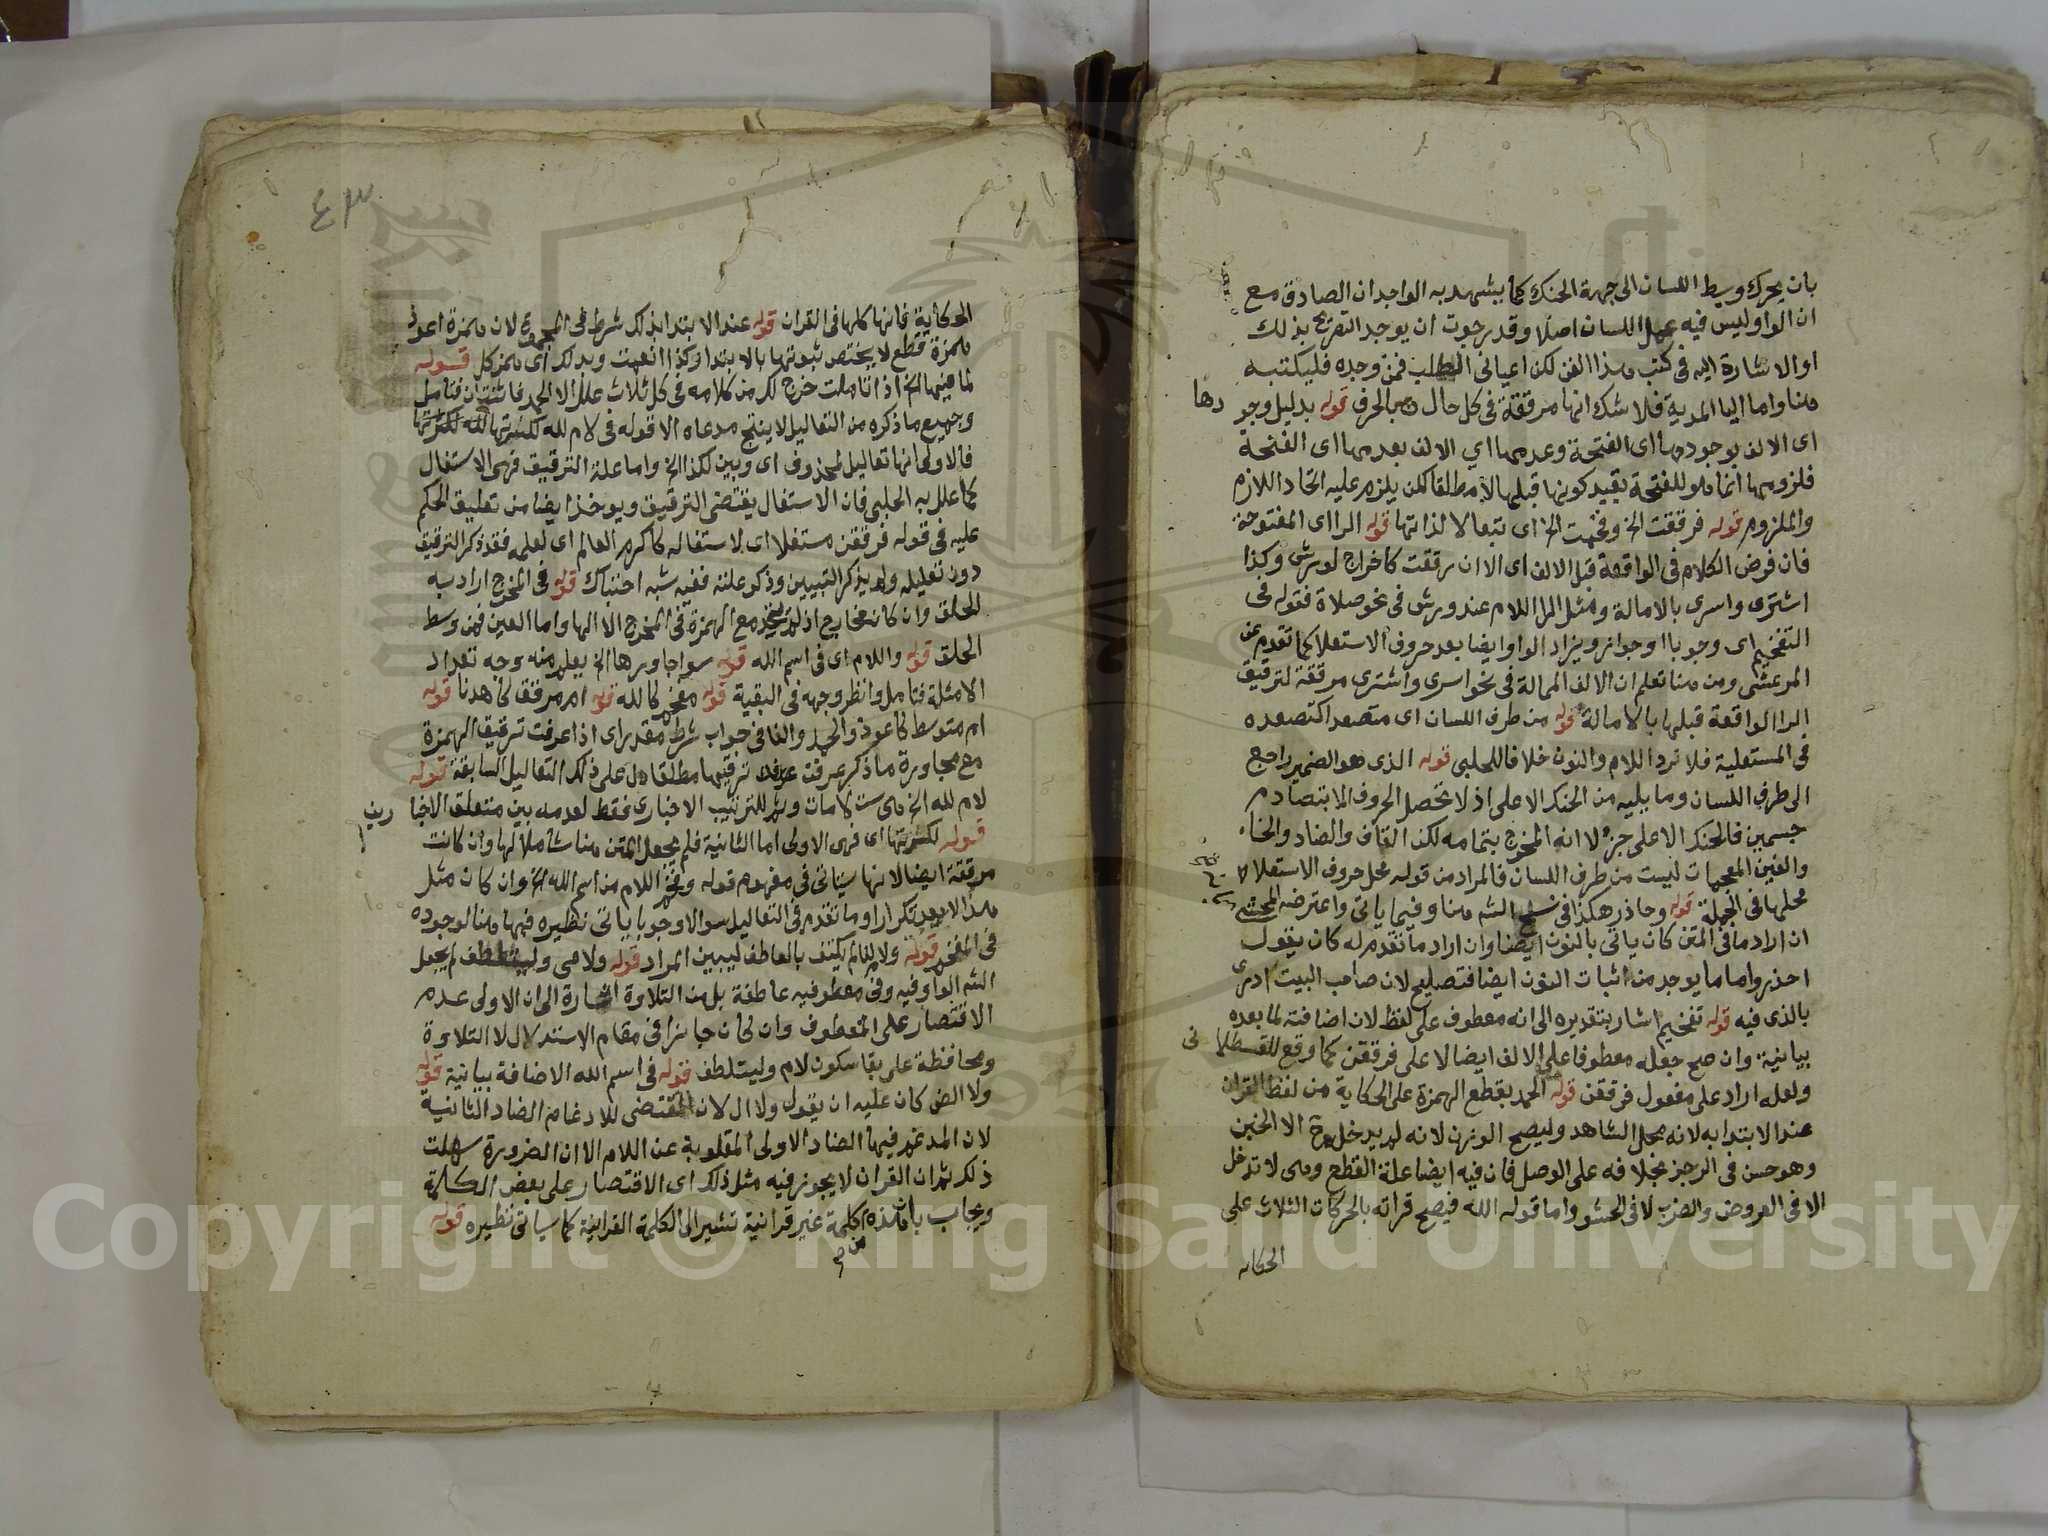 بان يحرك وسط اللسان الى جهة الحنك كما يشهد به الواجدان الصادق مع
ان الواو ليس فيه عمل اللسان اصلا وقد رجوت ان يوجد التصريح بذلك
او الاشارة اليه في كتب هذا الفن لكن اعياني الطلب فمن وجده فليكتبه
هنا واما اليا المدية فلا شك انها مرققة في كل حال قوله بدليل وجو دها
اى الالف بوجودها اى الفتحة وعدمها اي الالف بعدمها اى الفتحة
فلزومها انما هو للفتحة بقيد كونها قبلها لا مطلقا لكن يلزم عليه اتحاد اللازم
والملزوم قوله فرققت الخ وفخمت الخ اى تبعا لا لذاتها قوله الرا اى المفتوحة
فان فرض الكلام في الواقعة قبل الالف اى الا ان رققت كاخراج لورش وكذا
اشترى واسرى بالامالة ومثل الرا اللام عند ورش في نحو صلاة فقوله في
التفخيم اى وجوبا او جوازا ويزاد الواو ايضا بعد حروف الاستعلا كما تقدم عن
المرعشى ومن هنا تعلم ان الالف الممالة في نحو اسرى واشترى مرققة لترقيق
الرا الواقعة قبلها بالامالة قوله من طرف اللسان اى متصعدا كتصعده
في المستعلية فلا ترد اللام والنون خلافا للحلبى قوله الذى هو الضمير راجع
الى طرف اللسان وما يليه من الحنك الاعلى اذ لا تحصل الحروف الا بتصادم
جسمين فالحنك الاعلى جزء لا انه المخرج بتمامه لكن القاف والضاد والخاء
والغين المعجمات ليست من طرف اللسان فالمراد من قوله محل حروف الاستعلا
محلها في الجملة قوله وحاذر هكذا في نسخ الشه هنا وفيما ياتى واعترضه المحشى
ان اراد ما في المتن كان ياتى بالنون ايضا وان اراد ما تقدم له كان يقول
احذر واما ما يوجد من اثبات النون ايضا فتصليح لان صاحب البيت ادرى
بالذى فيه قوله تفخيم اشار بتقديره الى انه معطوف على لفظ لان اضافته لما بعده
بيانية وان صح جعله معطوفا على الالف ايضا لا على فرققن كما وقع للقسطلا نى
ولعله اراد على مفعول فرققن قوله الحمد بقطع الهمزة على الحكاية من لفظ القران
عند الابتدا به لانه محل الشاهد وليصح الوزن لانه لم يدخله ح الا الخبن
وهو حسن في الرجز بخلافه على الوصل فان فيه ايضا علة القطع وهى لا تدخل
الا في العروض والضرب لا في الحشو واما قوله الله فيصح قراته بالحركات الثلاث على
الحكاية
٤٣
الحكاية فانها كلها في القران قوله عند الابتدا بذلك شرط في المجموع لان همزة اعوذ
همزة قطع لا يختص ثبوتها بالابتدا وكذا انعمت وبدلك اى همز كل قوله
لما فيهما الخ اذا تاملت خرج لك من كلامه في كل ثلاث علل الا الحمد فاثنتان فتامل
وجميع ما ذكره من التعاليل لا ينتج مدعاه الا قوله في لام لله لكسرتها
فالاولى انها تعاليل لمحذوف اى وبين لكذا الخ واما علة الترقيق فهى الاستفال
كما علل به الحلبى فان الاستفال يقتضى الترقيق ويوخذ ايضا من تعليق الحكم
عليه في قوله فرققن مستفلا اى لاستفاله كاكرم العالم اى لعلمه فقد ذكر الترقيق
دون تعليله ولم يذكر التبيين وذكر علته ففيه شبه احتباك قوله في المخرج اراد به
الحلق وان كان مخارج اذ لم يتحد مع الهمزة في المخرج الا الها واما العين فمن وسط
الحلق قوله واللام اى في اسم الله قوله سوا جاورها الخ يعلم منه وجه تعداد
الامثلة فتامل وانظر وجهه في البقية قوله مفخم كالله قوله ام مرقق كاهدنا قوله
ام متوسط كاعوذ والحمد والفا في جواب شرط مقدر اى اذا عرفت ترقيق الهمزة
مع مجاورة ما ذكر عرفت ترقيقها مطلقا دل على ذلك التعاليل السابقة قوله
لام لله الخ هى ست كلمات وثم للترتيب الاخبارى فقط لعدمه بين متعلق الاخبا رين
قوله لكسرتها اى فهى الاولى اما الثانية فلم يجعل المتن هنا شاملا لها وان كانت
مرققة ايضا لانها ستاتى في مفهوم قوله وفخم اللام من اسم الله الخ وان كان مثل
هذا لا يعد تكرارا وما تقدم في التعاليل سوالا وجوابا ياتى نظيره فيها هنا لوجوده
في المفخم قوله ولام لنا لم يكتف بالعاطف ليبين المراد قوله ولا مى وليتلطف لم يجعل
الشه الواو فيه وفي معطوفيه عاطفة بل من التلاوة اشارة الى ان الاولى عدم
الاقتصار على المعطوف وان كان جائزا في مقام الاستدلال لا التلاوة
ومحافظة على بقا سكون لام وليتلطف قوله في اسم الله الاضافة بيانية قوله
ولا الض كان عليه ان يقول ولا ال لان المقتضى للادغام الضاد الثانية
لان المدغم فيها الضاد الاولى المقلوبة عن اللام الا ان الضرورة سهلت
ذلك ثم ان القران لا يجوز فيه مثل ذلك اى الاقتصار على بعض الكلمة
ويجاب بان هذه كلمة غير قرانية تشير الى الكلمة القرانية كما سياتى نظيره قوله
من
Copyright © King Saud University
1957